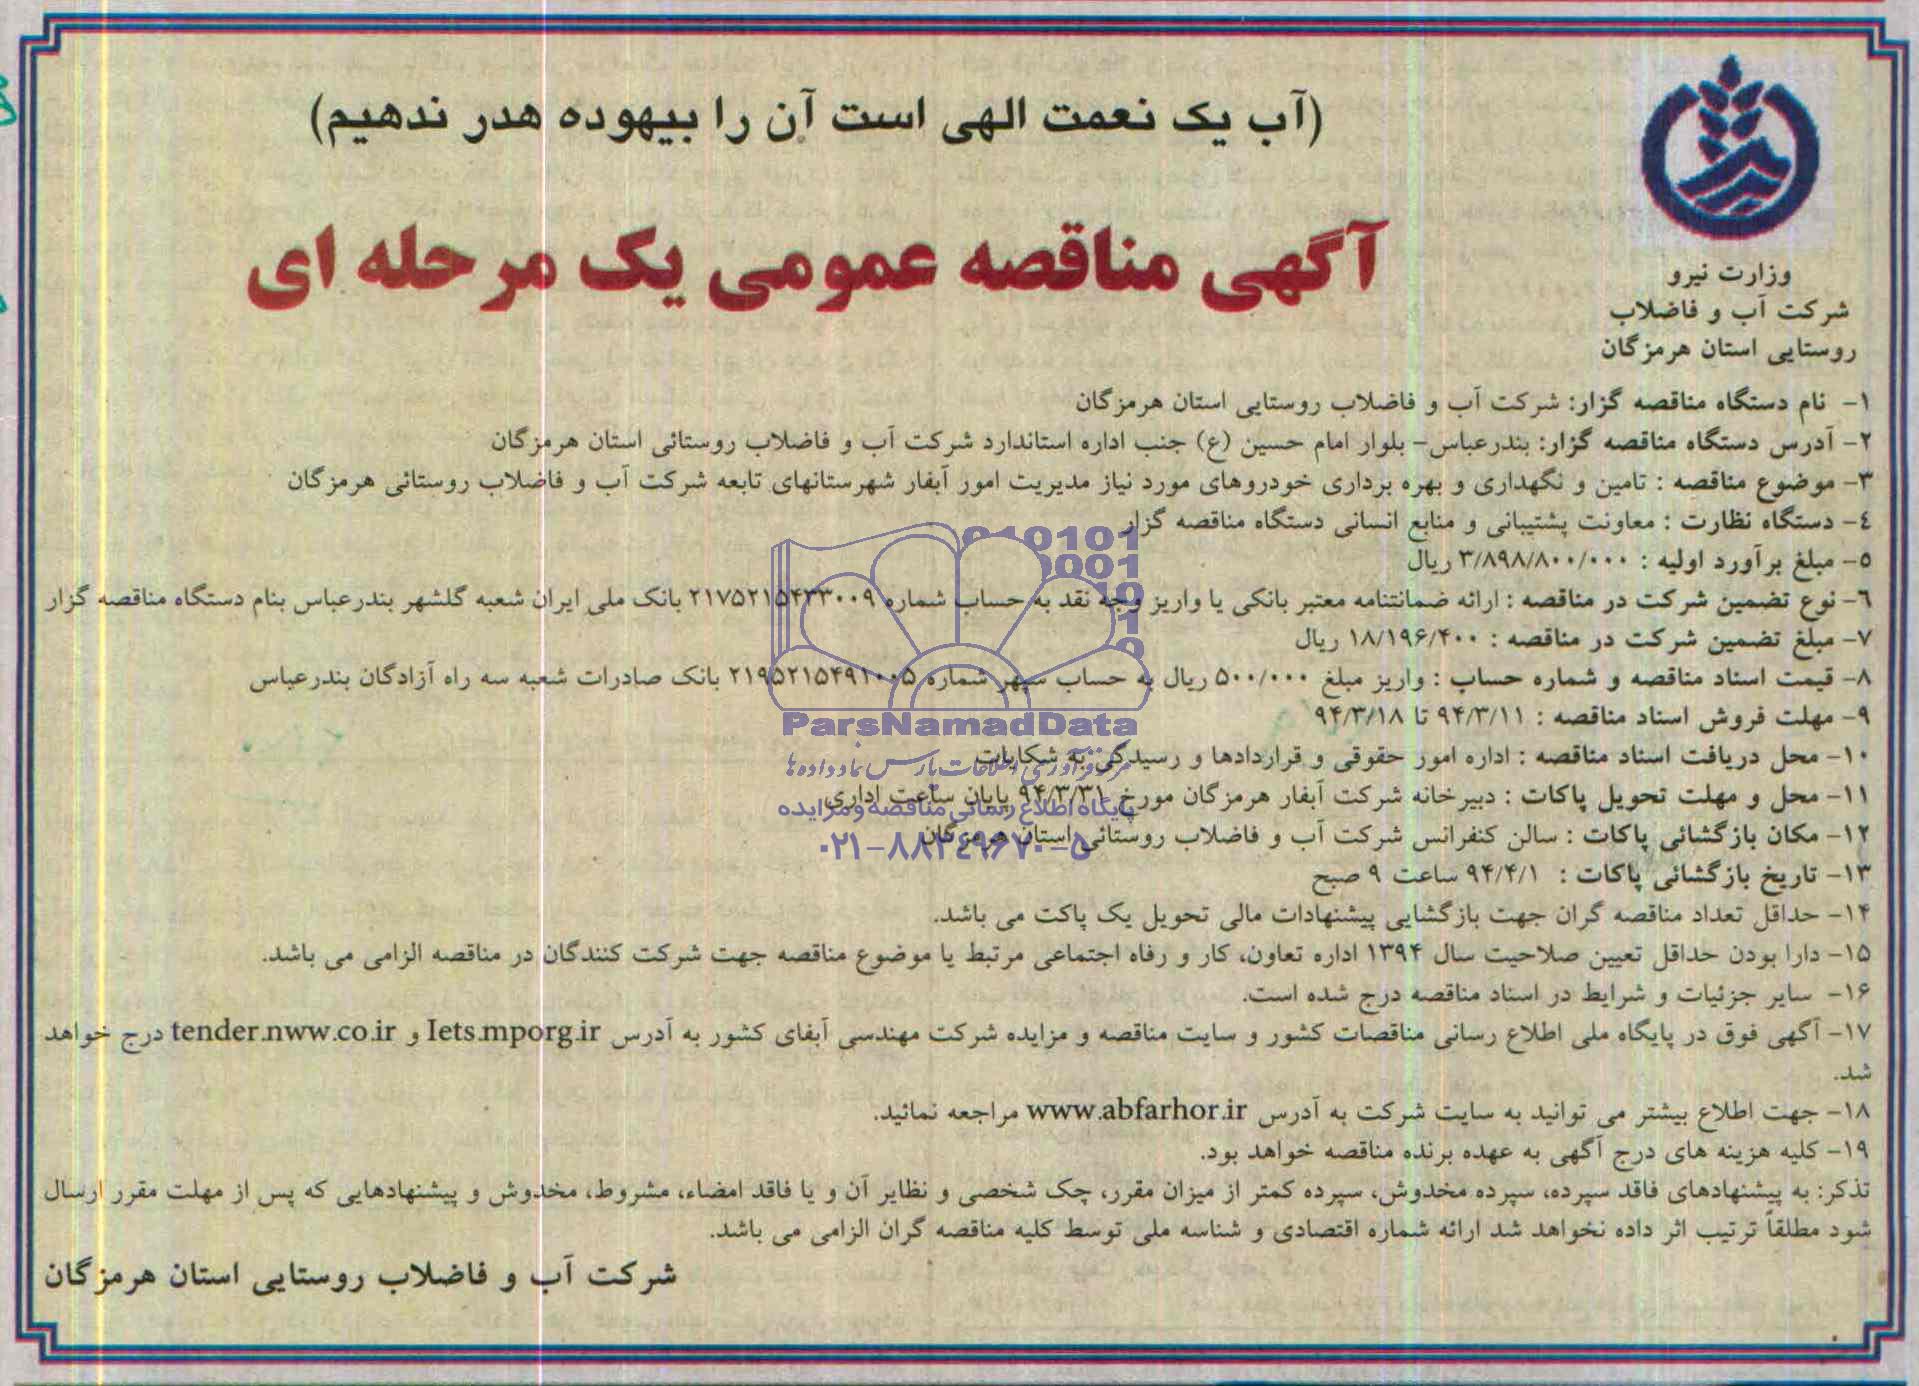 (آب یک نعمت الهی است آن را بیهوده هدر ندهیم)
آگهی مناقصه عمومی یک مرحله ای
وزارت نیرو
شرکت آب و فاضلاب
روستایی استان هرمزگان
۱- نام دستگاه مناقصه گزار: شرکت آب و فاضلاب روستایی استان هرمزگان
۲- آدرس دستگاه مناقصه گزار: بندرعباس- بلوار امام حسین (ع) جنب اداره استاندارد شرکت آب و فاضلاب روستائی استان هرمزگان
۳- موضوع مناقصه : تامین و نگهداری و بهره برداری خودروهای مورد نیاز مدیریت امور آبفار شهرستانهای تابعه شرکت آب و فاضلاب روستائی هرمزگان
٤- دستگاه نظارت : معاونت پشتیبانی و منابع انسانی دستگاه مناقصه گزار
۵- مبلغ برآورد اولیه : ۳/۸۹۸/۸۰۰/۰۰۰ ریال
٦- نوع تضمین شرکت در مناقصه : ارائه ضمانتنامه معتبر بانکی یا واریز وجه نقد به حساب شماره ۲۱۷۵۲۱۵۴۳۳۰۰۹ بانک ملی ایران شعبه گلشهر بندرعباس بنام دستگاه مناقصه گزار
۷- مبلغ تضمین شرکت در مناقصه : ۱۸/۱۹۶/۴۰۰ ریال
۸- قیمت اسناد مناقصه و شماره حساب : واریز مبلغ ۵۰۰/۰۰۰ ریال به حساب سپهر شماره ۲۱۹۵۲۱۵۴۹۱۰۰۵ بانک صادرات شعبه سه راه آزادگان بندرعباس
۹- مهلت فروش اسناد مناقصه : ۹۴/۳/۱۱ تا ۹۴/۳/۱۸
۱۰- محل دریافت اسناد مناقصه : اداره امور حقوقی و قراردادها و رسیدگی به شکایات
۱۱- محل و مهلت تحویل پاکات : دبیرخانه شرکت آبفار هرمزگان مورخ ۹۴/۳/۳۱ پایان ساعت اداری
۱۲- مکان بازگشائی پاکات : سالن کنفرانس شرکت آب و فاضلاب روستائی استان هرمزگان
۱۳- تاریخ بازگشائی پاکات : ۹۴/۴/۱ ساعت ۹ صبح
۱۴- حداقل تعداد مناقصه گران جهت بازگشایی پیشنهادات مالی تحویل یک پاکت می باشد.
۱۵- دارا بودن حداقل تعیین صلاحیت سال ۱۳۹۴ اداره تعاون، کار و رفاه اجتماعی مرتبط یا موضوع مناقصه جهت شرکت کنندگان در مناقصه الزامی می باشد.
۱۶- سایر جزئیات و شرایط در اسناد مناقصه درج شده است.
۱۷- آگهی فوق در پایگاه ملی اطلاع رسانی مناقصات کشور و سایت مناقصه و مزایده شرکت مهندسی آبفای کشور به آدرس Iets.mporg.ir و tender.nww.co.ir درج خواهد
شد.
۱۸- جهت اطلاع بیشتر می توانید به سایت شرکت به آدرس www.abfarhor.ir مراجعه نمائید.
۱۹- کلیه هزینه های درج آگهی به عهده برنده مناقصه خواهد بود.
تذکر: به پیشنهادهای فاقد سپرده، سپرده مخدوش، سپرده کمتر از میزان مقرر، چک شخصی و نظایر آن و یا فاقد امضاء، مشروط، مخدوش و پیشنهادهایی که پس از مهلت مقرر ارسال
شود مطلقاً ترتیب اثر داده نخواهد شد ارائه شماره اقتصادی و شناسه ملی توسط کلیه مناقصه گران الزامی می باشد.
شرکت آب و فاضلاب روستایی استان هرمزگان
ParsNamadData
مرکز فرآوری اطلاعات پارس نماد داده ها
پایگاه اطلاع رسانی مناقصه و مزایده
۰۲۱-۸۸۳٤۹۶۷۰-۵